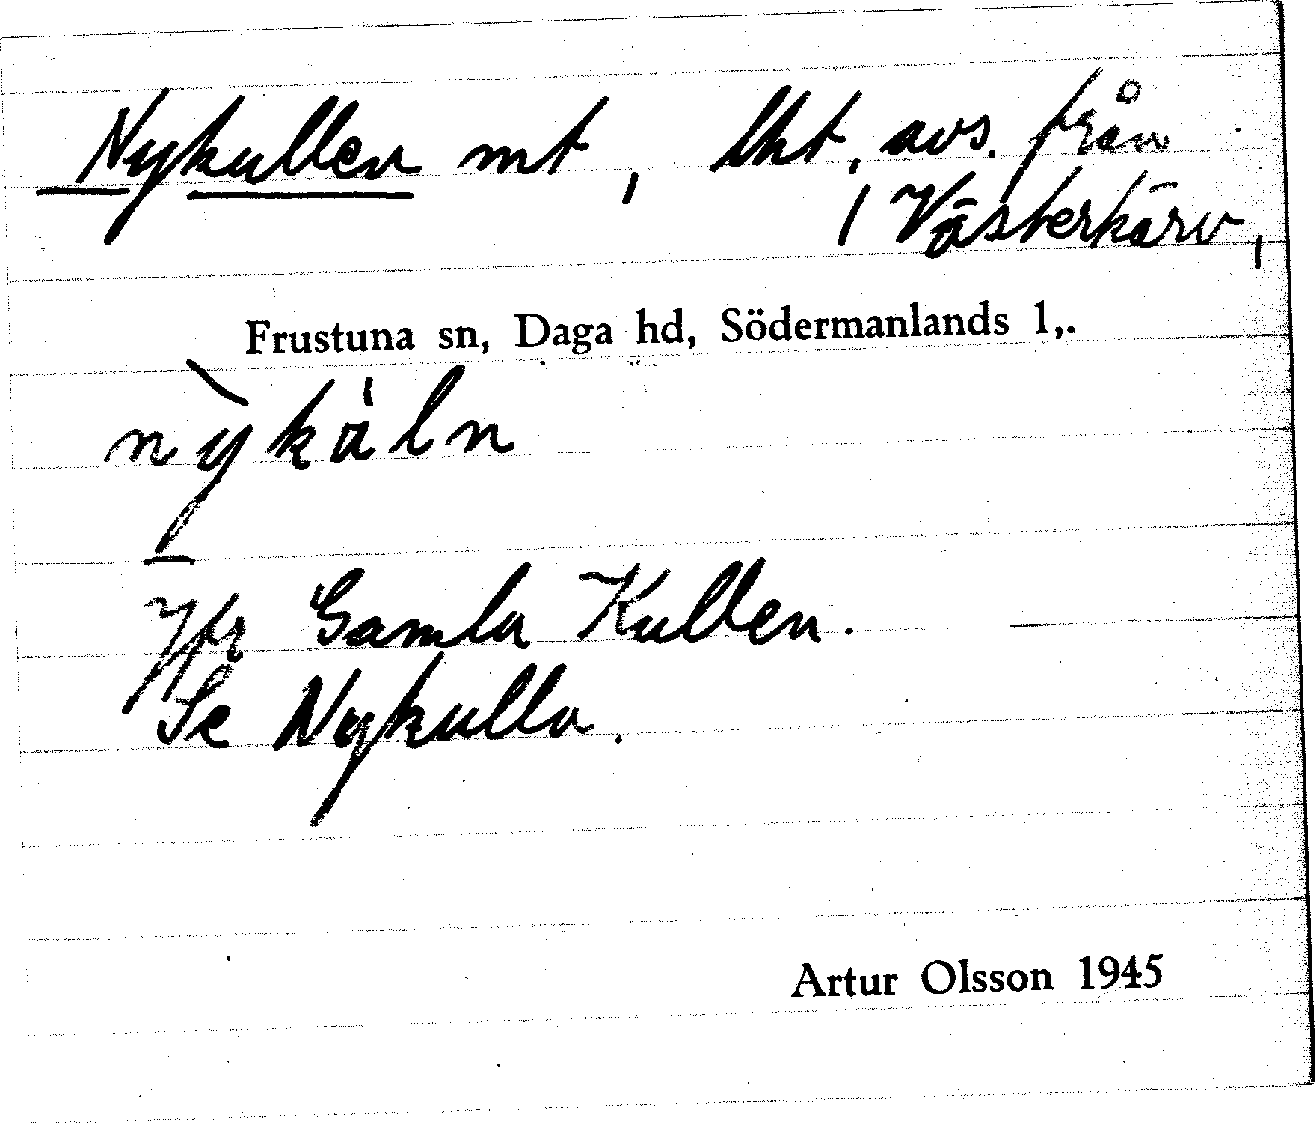 Nykullen mt, lht, avs. från
/ Västerkärv,
Frustuna sn, Daga hd, Södermanlands l,.
Jfr Gamla Kullen.
Se Nykulla.
Artur Olsson 1945